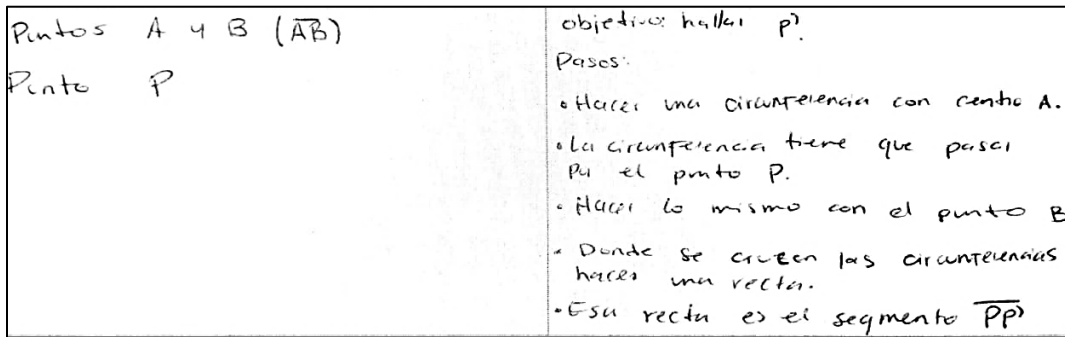 Puntos A y B (AB)
Punto P
objetivo: hallar P'.
Pasos:
• Hacer una circunferencia con centro A.
• La circunferencia tiene que pasar
por el punto P.
• Hacer lo mismo con el punto B
• Donde se cruzen las circunferencias
haces una recta.
• Esa recta es el segmento PP'